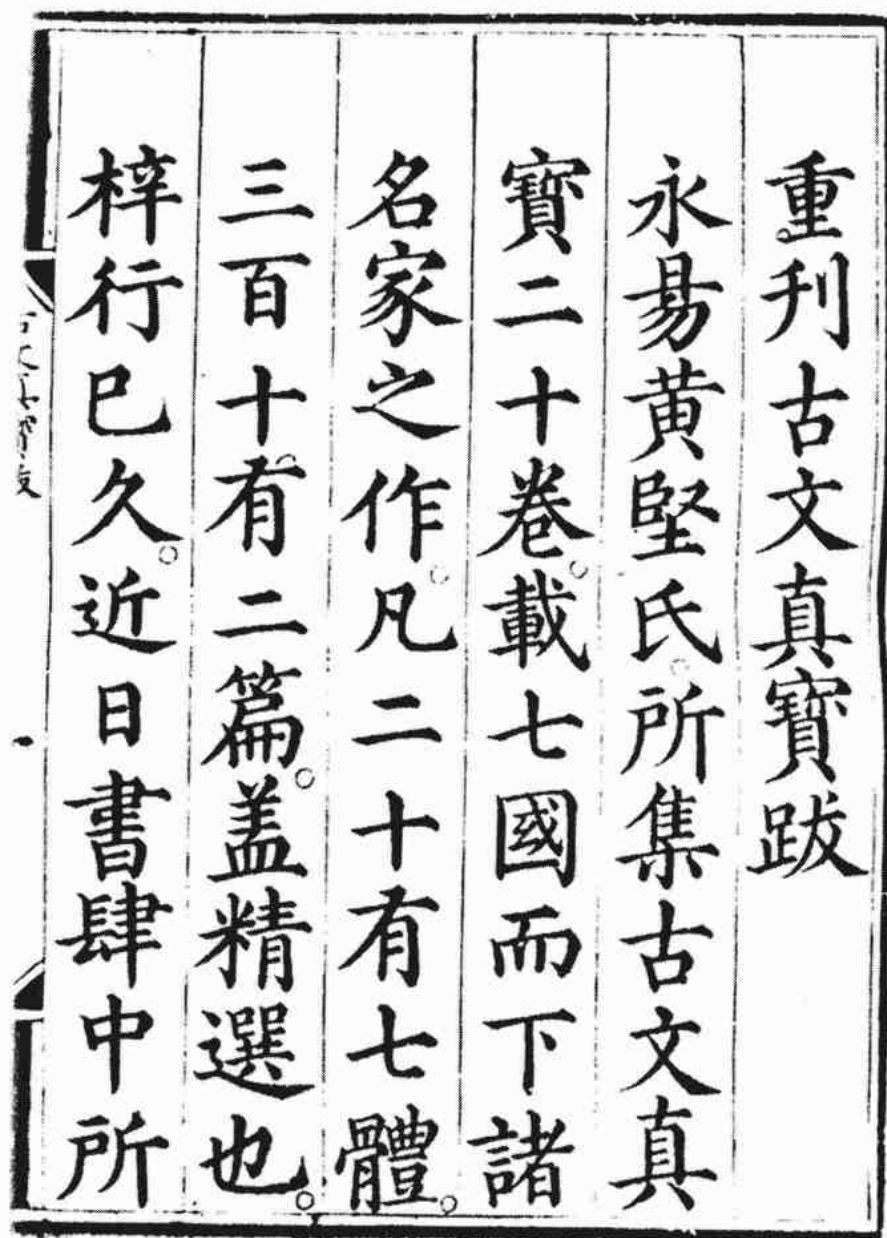 重刋古文真寶跋
永昜黄堅氏所集古文真
寶二十卷載七國而下諸
名家之作凡二十有七體
三百十有二篇盖精選也
梓行已久近日書肆中所